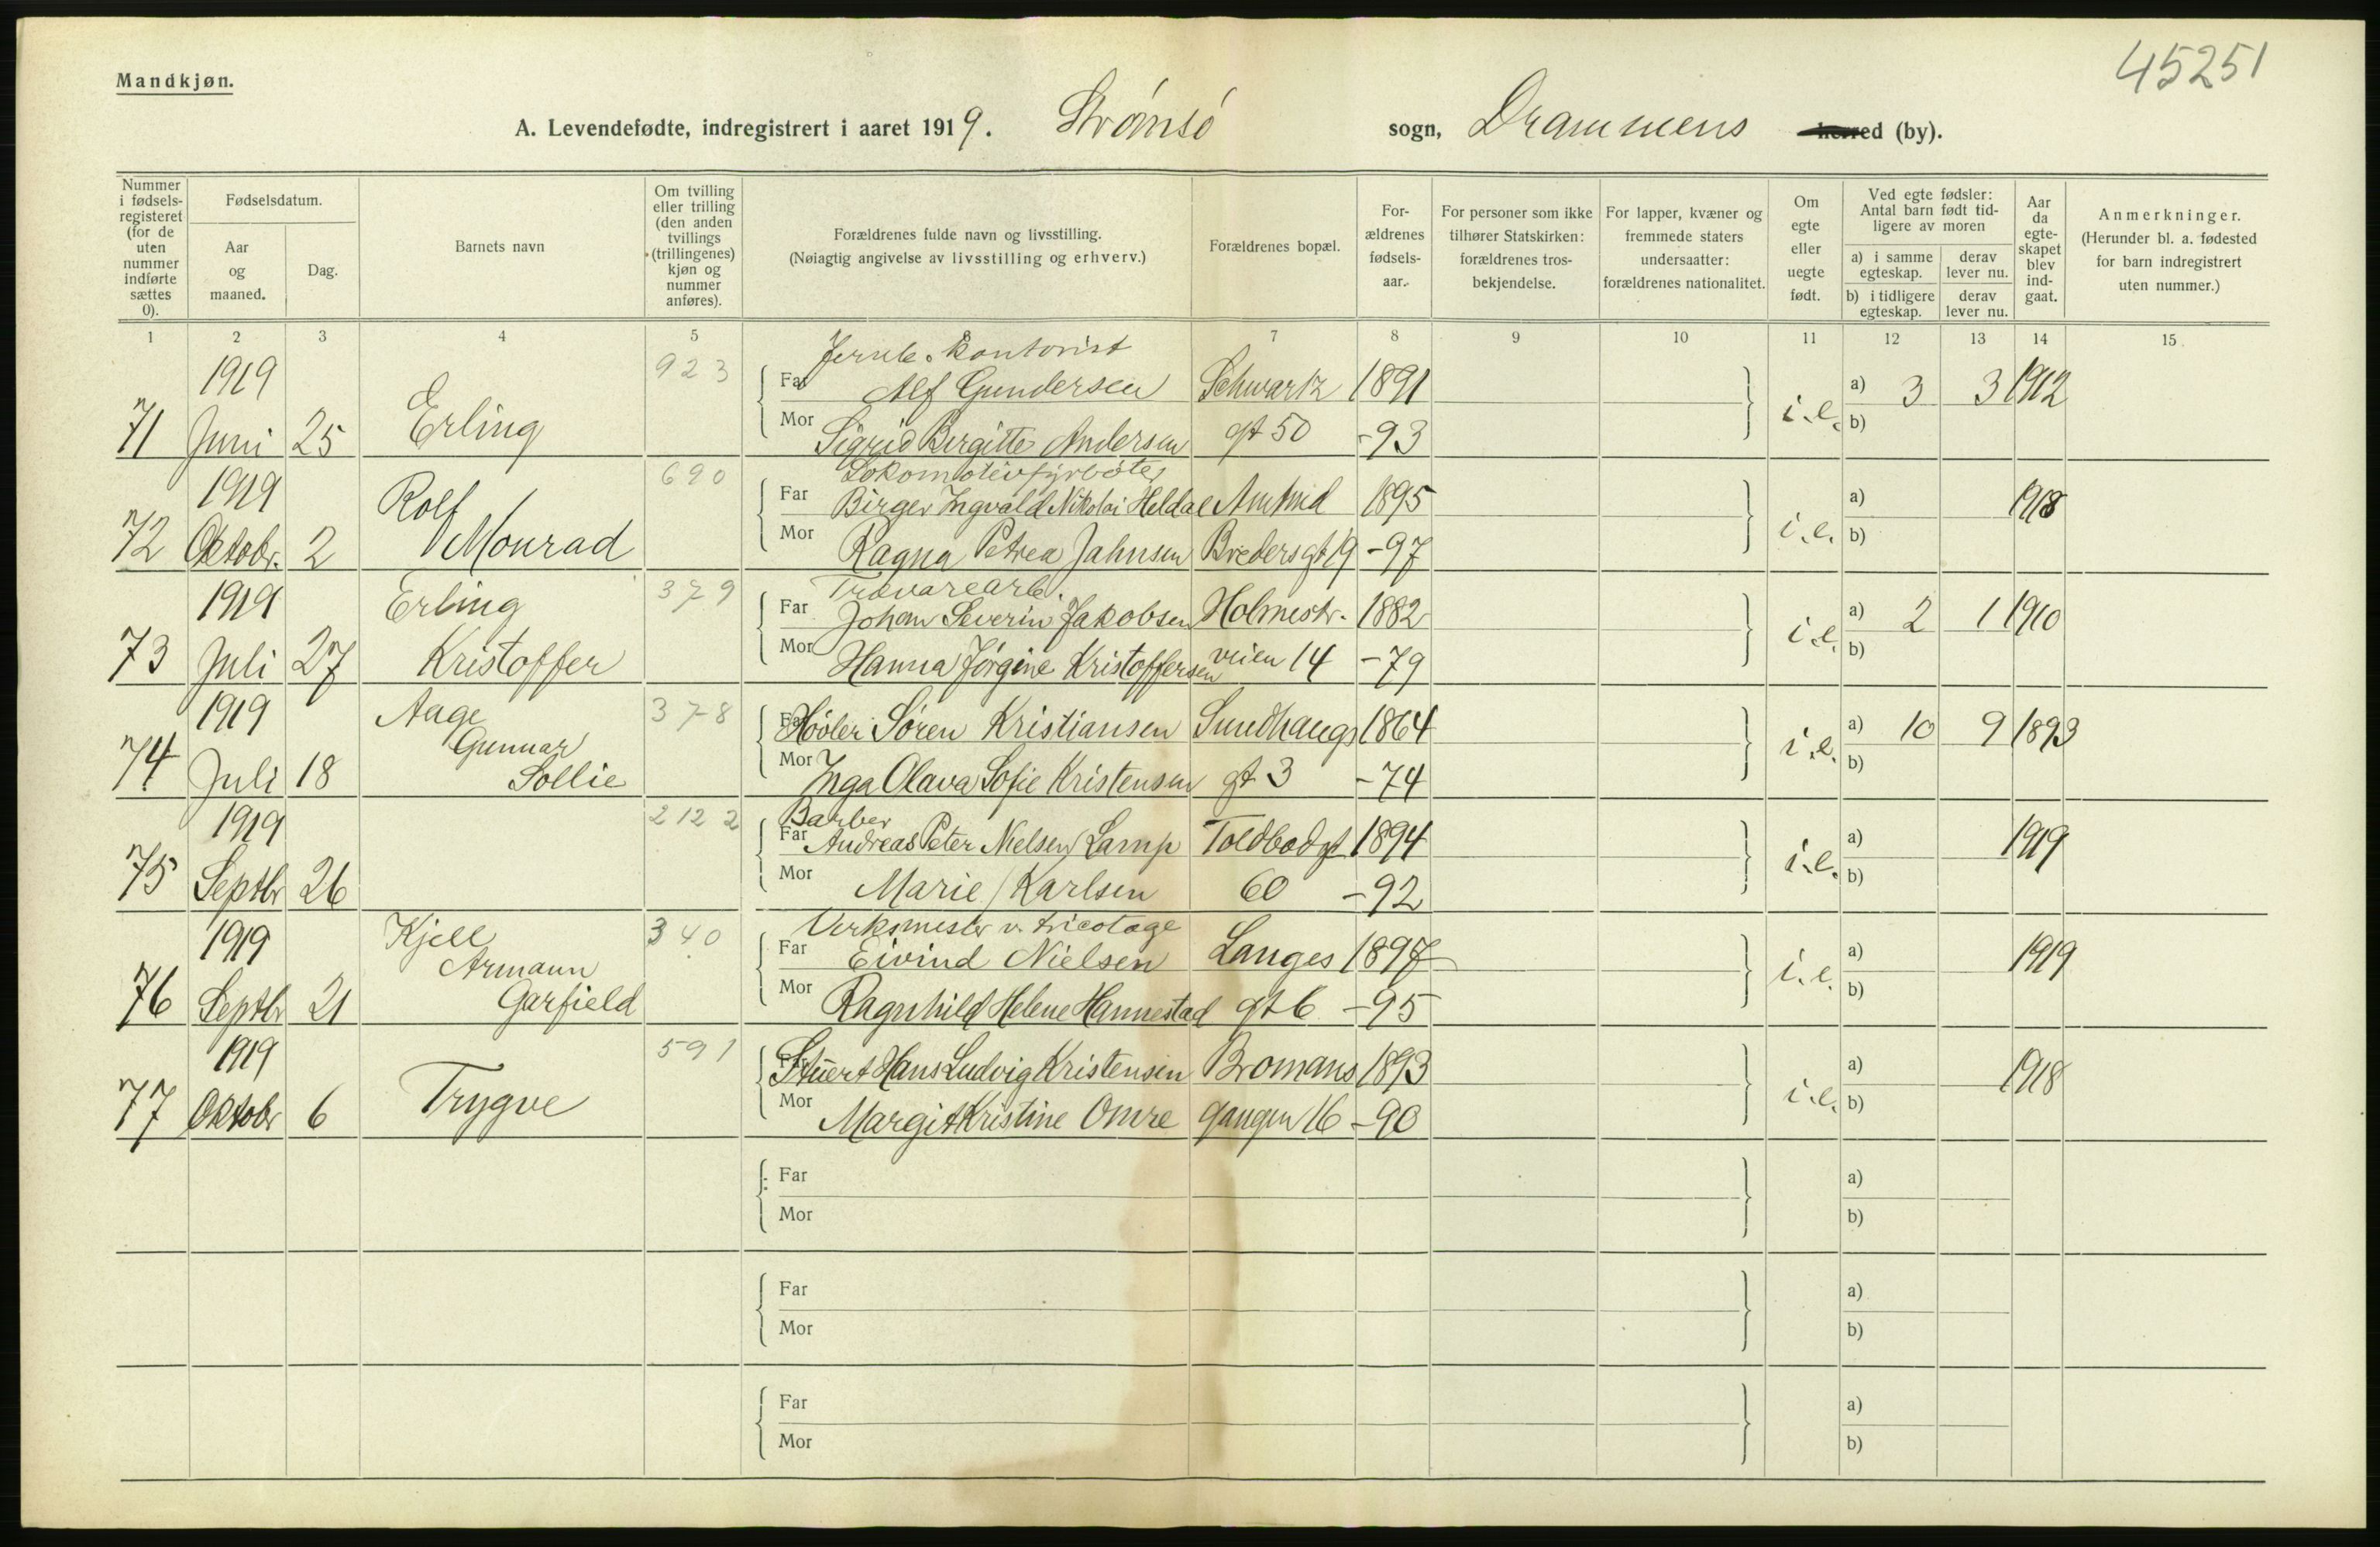 45251
Mandkjøn.
A. Levendefødte, indregistrert i aaret 1919. Strømsø sogn, Drammens herred (by).
Nummer i fødsels-registeret (for de uten nummer indførte sættes 0).
Fødselsdatum.
Aar og maaned.
Dag.
Barnets navn
Om tvilling eller trilling (den anden tvillings (trillingenes) kjøn og nummer anføres).
Forældrenes fulde navn og livsstilling. (Nøiagtig angivelse av livsstilling og erhverv.)
Forældrenes bopæl.
For-ældrenes fødsels-aar.
For personer som ikke tilhører Statskirken: forældrenes tros-bekjendelse.
For lapper, kvæner og fremmede staters undersaatter: forældrenes nationalitet.
Om egte eller uegte født.
Ved egte fødsler: Antal barn født tid-ligere av moren
a) i samme egteskap. derav lever nu.
b) i tidligere egteskap. derav lever nu.
Aar da egte-skapet blev ind-gaat.
Anmerkninger. (Herunder bl. a. fødested for barn indregistrert uten nummer.)
1 2 3 4 5 6 7 8 9 10 11 12 13 14 15
1919 923 Jernb. kontorist
Far Alf Gundersen Schwartz 1891 a) 3 3 1912
71 Juni 25 Erling Mor Sigrid Birgitte Andersen gt 50 -93 i.e. b)
1919 690 Lokomotivfyrbøter
Rolf Far Birger Ingvald Nikolai Heldal Amtmd 1895 a) 1918
72 Oktobr. 2 Monrad Mor Ragna Petrea Jahnsen Bredersgt 19 -97 i.e. b)
1919 Erling 379 Trævarearb.
Far Johan Severin Jakobsen Holmestr. 1882 a) 2 1 1910
73 Juli 27 Kristoffer Mor Hanna Jørgine Kristoffersen veien 14 -79 i.e. b)
1919 Aage 378 Far Høvler Søren Kristiansen Sundhaugs 1864 a) 10 9 1893
Gunnar
74 Juli 18 Sollie Mor Inga Olava Sofie Kristensen gt 3 -74 i.e. b)
1919 2122 Barber
Far Andreas Peter Nielsen Lamp Toldbodgt 1894 a) 1919
75 Septbr 26 Mor Marie Karlsen 60 -92 i.e. b)
1919 Kjell 340 Verksmester v. tricotage
Armann Far Eivind Nielsen Langes 1897 a) 1919
76 Septbr 21 Garfield Mor Ragnhild Helene Hannestad gt 6 -95 i.e. b)
1919 591 Far Stuert Hans Ludvig Kristensen Bromans 1893 a) 1918
77 Oktobr 6 Trygve Mor Margit Kristine Omre gangen 16 -90 i.e. b)
Far a)
Mor b)
Far a)
Mor b)
Far a)
Mor b)